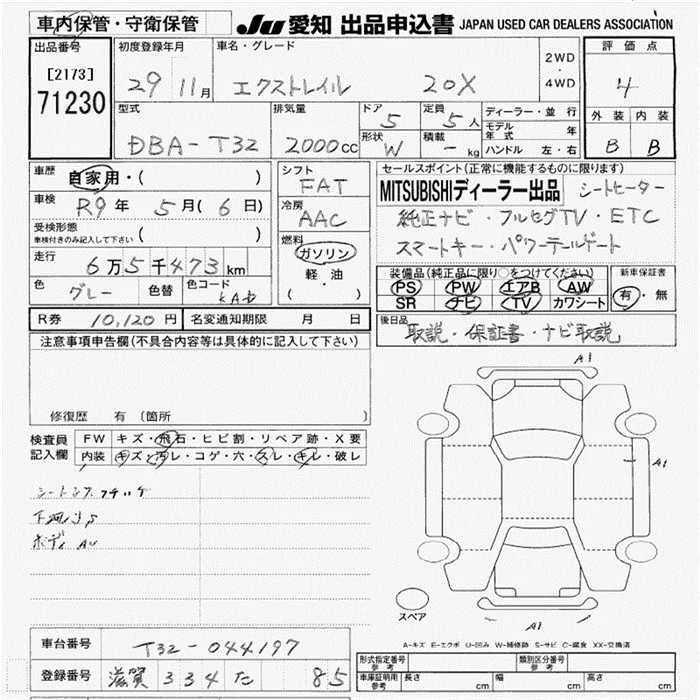 車内保管・守衛保管
JU 愛知 出品申込書 JAPAN USED CAR DEALERS ASSOCIATION
出品番号 初度登録年月 車名・グレード 2WD・4WD 評価点
[2173] 71230 29年11月 エクストレイル 20X 4
型式 排気量 ドア 5 定員 5人 ディーラー・並行 外装 内装
モデル年式 年
DBA-T32 2000cc 形状 W 積載 - kg ハンドル 左・右 B B
車歴 自家用・( ) シフト FAT セールスポイント(正常に機能するものに限ります)
車検 R9年5月(6日) 冷房 AAC MITSUBISHIディーラー出品 シートヒーター
受検形態 車検付きのみ記入して下さい ( ) 純正ナビ・フルセグTV・ETC
走行 6万5千473km 燃料 ガソリン 軽・油 ( ) スマートキー・パワーテールゲート
色 グレー 色替 色コード KAD 装備品(純正品に限り○をつけてください) 新車保証書
PS PW エアB AW 有・無
SR ナビ TV カワシート
R券 10,120円 名変通知期限 月 日 後日品
取説・保証書・ナビ取説
注意事項申告欄(不具合内容等は具体的に記入して下さい)
修復歴 有 〔箇所 〕
A1
検査員記入欄 FW キズ・飛石・ヒビ割・リペア跡・X要
内装 キズ・汚レ・コゲ・穴・スレ・キレ・破レ
A1
ボディ
スペア
A1
A-キズ E-エクボ U-凹み W-補修跡 S-サビ C-腐食 XX-交換済
車台番号 T32-044197
登録番号 滋賀 334 た 85
形式指定番号 参考 類別区分番号 参考
車庫証明用 参考 長さ cm 幅 cm 高さ cm